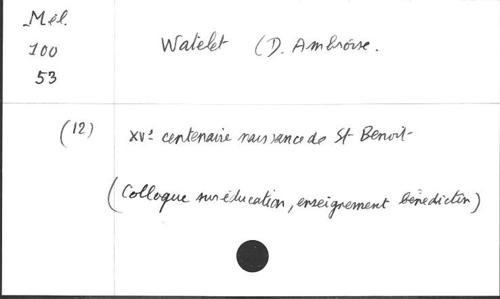 Mél.
100
53
Watelet (D. Ambroise.
(12)
XVe centenaire naissance de St Benoit
(Colloque sur éducation, enseignement bénédictin)